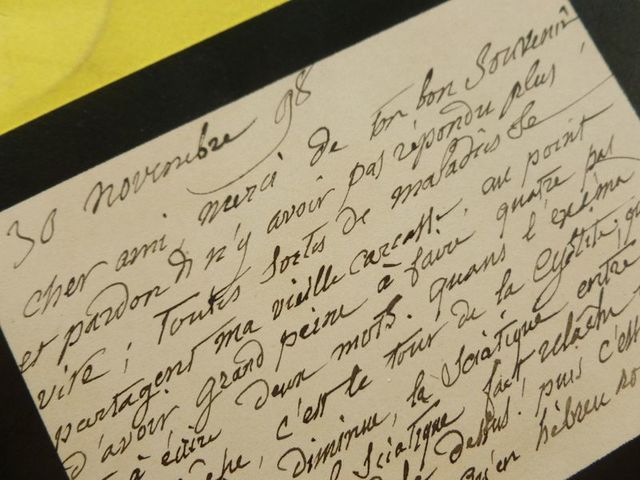 30 novembre 98
cher ami, merci de ton bon souvenir,
et pardon d n'y avoir pas répondu plus
vite; Toutes sortes de maladies se
partagent ma vieille carcasse, au point
d'avoir grand peine à faire quatre pas
à écrire deux mots. quand l'exéma
c'est le tour de la Cystite, qu
diminue, la Sciatique entre
Sciatique fait relâche
dessus! puis c'est
qu'en hébreu